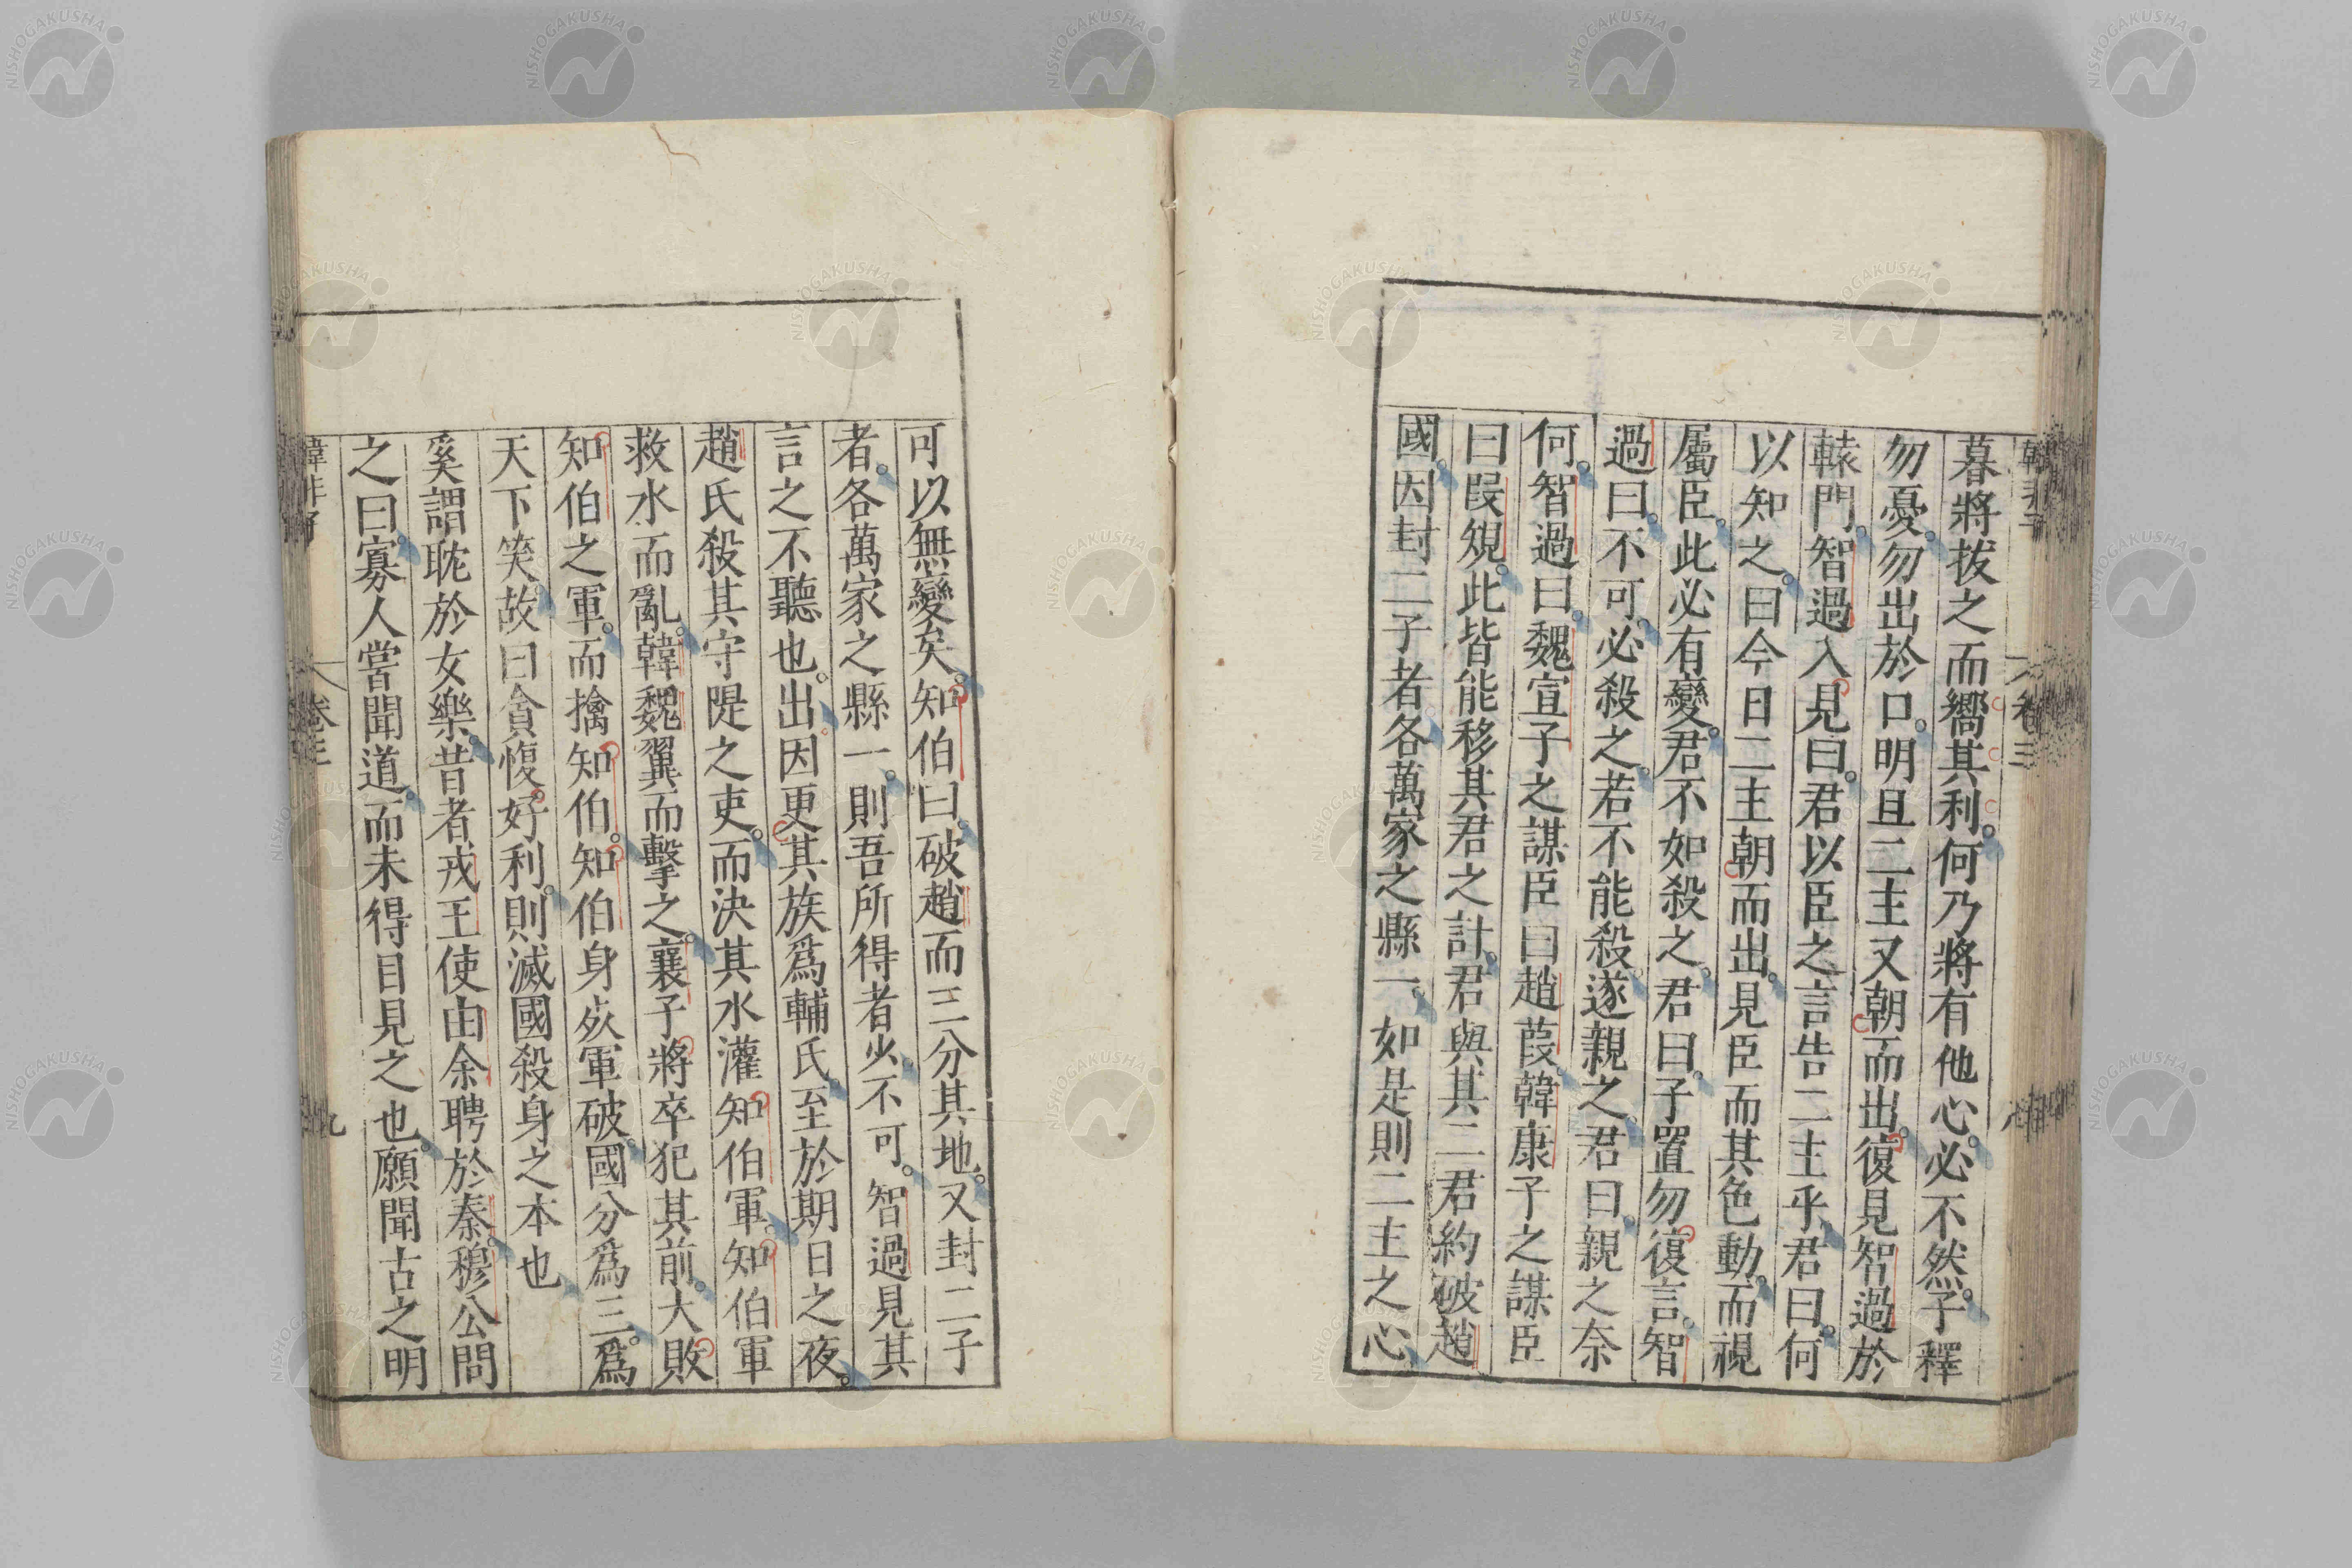 韓非子 卷三 八
暮將拔之而嚮其利何乃將有他心必不然子釋
勿憂勿出於口明旦二主又朝而出復見智過於
轅門智過入見曰君以臣之言告二主乎君曰何
以知之曰今日二主朝而出見臣而其色動而視
屬臣此必有變君不如殺之君曰子置勿復言智
過曰不可必殺之若不能殺遂親之君曰親之奈
何智過曰魏宣子之謀臣曰趙葭韓康子之謀臣
曰段規此皆能移其君之計君與其二君約破趙
國因封二子者各萬家之縣一如是則二主之心
可以無變矣知伯曰破趙而三分其地又封二子
者各萬家之縣一則吾所得者少不可智過見其
言之不聽也出因更其族爲輔氏至於期日之夜
趙氏殺其守隄之吏而決其水灌知伯軍知伯軍
救水而亂韓魏翼而擊之襄子將卒犯其前大敗
知伯之軍而擒知伯知伯身死軍破國分爲三爲
天下笑故曰貪愎好利則滅國殺身之本也
奚謂耽於女樂昔者戎王使由余聘於秦穆公問
之曰寡人嘗聞道而未得目見之也願聞古之明
韓非子 卷三 九
NISHOGAKUSHA